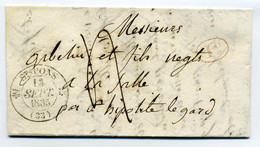 Messieurs
gibelin et fils negts
a la salle
par st hipolite le gard
ST PONS
13
SEPT.
1835
(33)